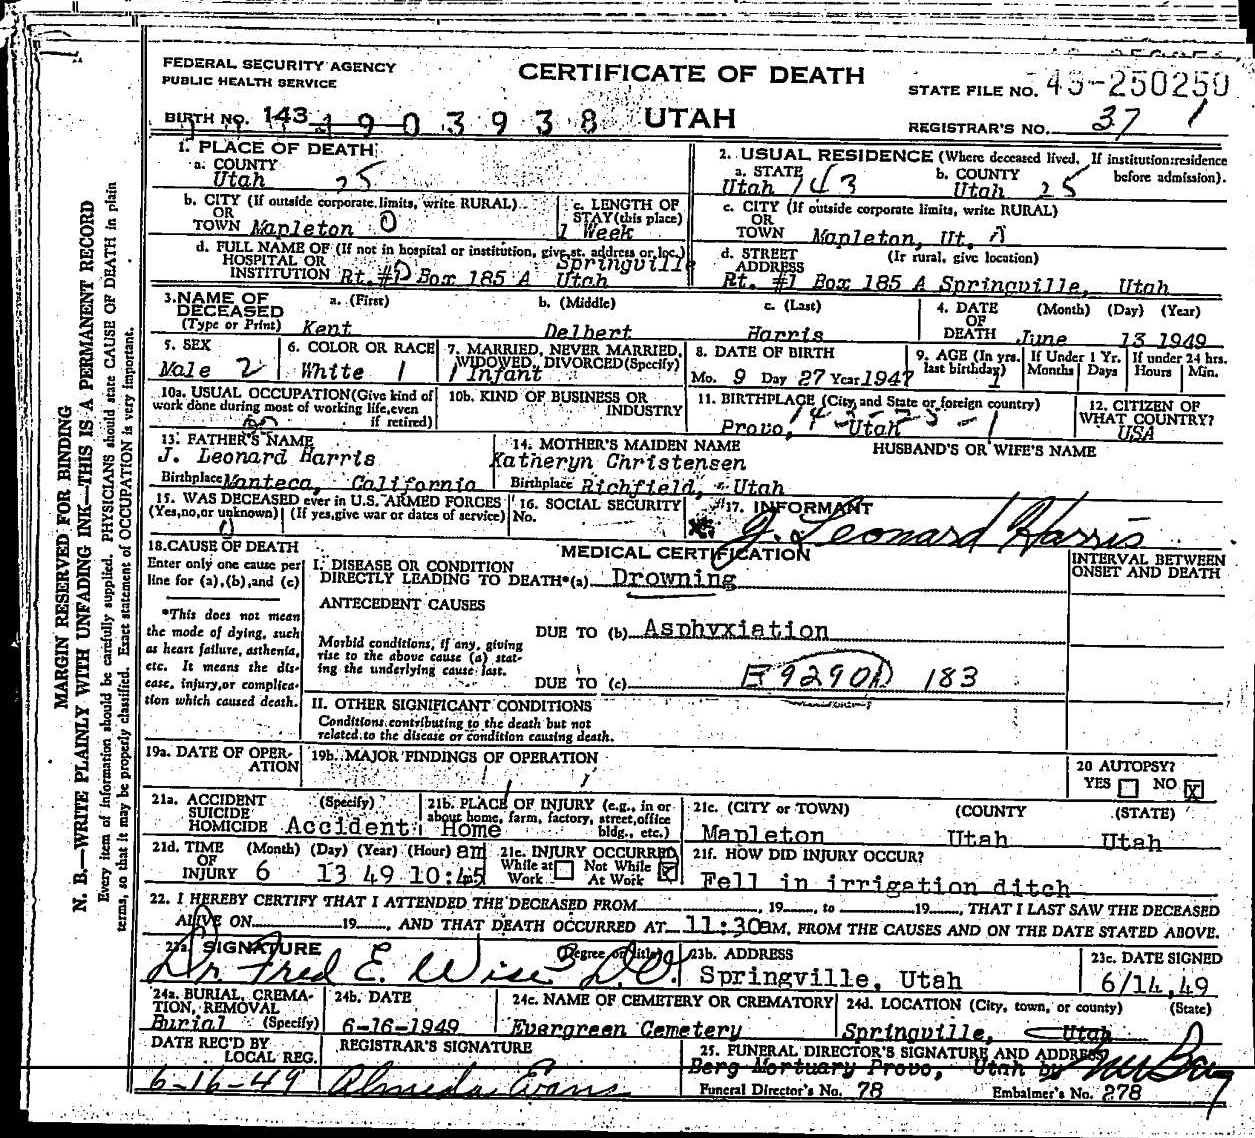 FEDERAL SECURITY AGENCY
PUBLIC HEALTH SERVICE
CERTIFICATE OF DEATH
UTAH
STATE FILE NO. 49-250250
REGISTRAR'S NO. 37 1
BIRTH NO. 143 4903938
1. PLACE OF DEATH
a. COUNTY
Utah 25
b. CITY (If outside corporate limits, write RURAL)
OR
TOWN Mapleton 0
c. LENGTH OF
STAY (this place)
1 Week
d. FULL NAME OF (If not in hospital or institution, give st. address or loc.)
HOSPITAL OR
INSTITUTION Rt. #1 Box 185 A Springville Utah
2. USUAL RESIDENCE (Where deceased lived. If institution: residence
before admission).
a. STATE
Utah 143
b. COUNTY
Utah 25
c. CITY (If outside corporate limits, write RURAL)
OR
TOWN Mapleton, Ut.
d. STREET (If rural, give location)
ADDRESS
Rt. #1 Box 185 A Springville, Utah
3. NAME OF
DECEASED
(Type or Print)
a. (First) Kent
b. (Middle) Delbert
c. (Last) Harris
4. DATE (Month) (Day) (Year)
OF
DEATH June 13 1949
5. SEX
Male 2
6. COLOR OR RACE
White 1
7. MARRIED, NEVER MARRIED,
WIDOWED, DIVORCED (Specify)
1 Infant
8. DATE OF BIRTH
Mo. 9 Day 27 Year 1947
9. AGE (In yrs.
last birthday)
1
If Under 1 Yr.
Months Days
If under 24 hrs.
Hours Min.
10a. USUAL OCCUPATION (Give kind of
work done during most of working life, even
if retired)
10b. KIND OF BUSINESS OR
INDUSTRY
11. BIRTHPLACE (City, and State or foreign country)
Provo, Utah
12. CITIZEN OF
WHAT COUNTRY?
USA
13. FATHER'S NAME
J. Leonard Harris
Birthplace Manteca, California
14. MOTHER'S MAIDEN NAME
Katheryn Christensen
Birthplace Richfield, Utah
HUSBAND'S OR WIFE'S NAME
15. WAS DECEASED ever in U.S. ARMED FORCES
(Yes, no, or unknown) (If yes, give war or dates of service)
0
16. SOCIAL SECURITY
No.
17. INFORMANT
J. Leonard Harris
18. CAUSE OF DEATH
Enter only one cause per
line for (a), (b), and (c)
*This does not mean
the mode of dying, such
as heart failure, asthenia,
etc. It means the dis-
ease, injury, or complica-
tion which caused death.
MEDICAL CERTIFICATION
INTERVAL BETWEEN
ONSET AND DEATH
I. DISEASE OR CONDITION
DIRECTLY LEADING TO DEATH*(a) Drowning
ANTECEDENT CAUSES
Morbid conditions, if any, giving
rise to the above cause (a) stat-
ing the underlying cause last.
DUE TO (b) Asphyxiation
DUE TO (c) E9290 183
II. OTHER SIGNIFICANT CONDITIONS
Conditions contributing to the death but not
related to the disease or condition causing death.
19a. DATE OF OPER-
ATION
19b. MAJOR FINDINGS OF OPERATION
20 AUTOPSY?
YES NO X
21a. ACCIDENT (Specify)
SUICIDE
HOMICIDE Accident
21b. PLACE OF INJURY (e.g., in or
about home, farm, factory, street, office
bldg., etc.)
Home
21c. (CITY or TOWN) (COUNTY (STATE)
Mapleton Utah Utah
21d. TIME (Month) (Day) (Year) (Hour) am
OF
INJURY 6 13 49 10:45
21e. INJURY OCCURRED
While at Not While
Work At Work X
21f. HOW DID INJURY OCCUR?
Fell in irrigation ditch
22. I HEREBY CERTIFY THAT I ATTENDED THE DECEASED FROM , 19 , to 19 , THAT I LAST SAW THE DECEASED
ALIVE ON 19 , AND THAT DEATH OCCURRED AT 11:30 AM, FROM THE CAUSES AND ON THE DATE STATED ABOVE.
23a. SIGNATURE (Degree or title)
Dr Fred E. Wise D.O.
23b. ADDRESS
Springville, Utah
23c. DATE SIGNED
6/14,49
24a. BURIAL, CREMA-
TION, REMOVAL
Burial (Specify)
24b. DATE
6-16-1949
24c. NAME OF CEMETERY OR CREMATORY
Evergreen Cemetery
24d. LOCATION (City, town, or county) (State)
Springville, Utah
DATE REC'D BY
LOCAL REG.
6-16-49
REGISTRAR'S SIGNATURE
Almeda Evans
25. FUNERAL DIRECTOR'S SIGNATURE AND ADDRESS
Berg Mortuary Provo, Utah by
Funeral Director's No. 78 Embalmer's No. 278
MARGIN RESERVED FOR BINDING
N. B.—WRITE PLAINLY WITH UNFADING INK—THIS IS A PERMANENT RECORD
Every item of information should be carefully supplied. PHYSICIANS should state CAUSE OF DEATH in plain
terms, so that it may be properly classified. Exact statement of OCCUPATION is very important.